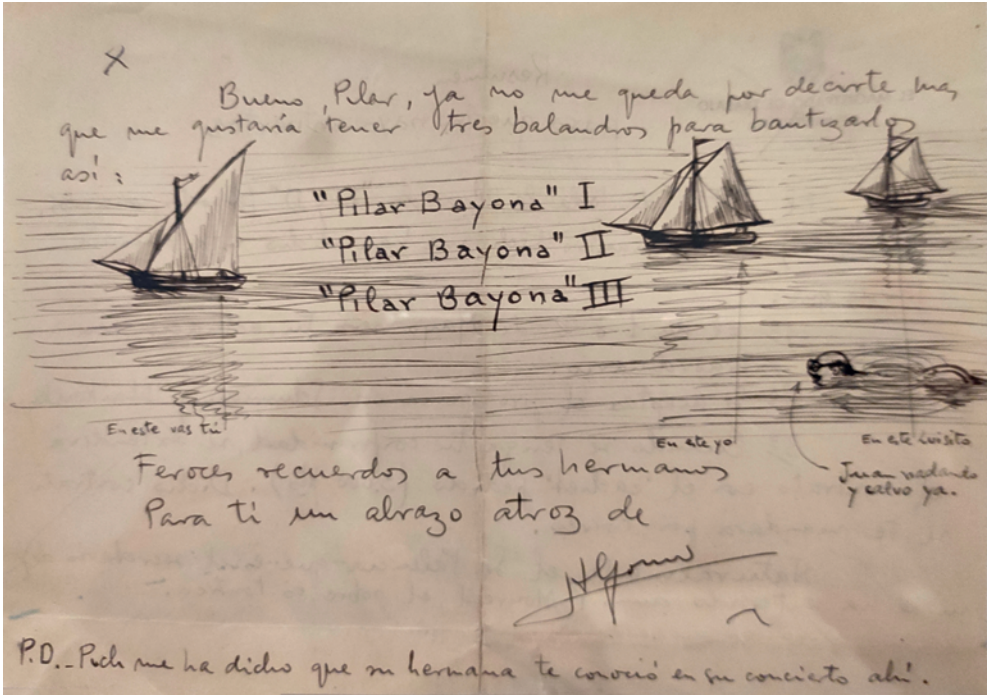 Bueno, Pilar, ya no me queda por decirte mas
que me gustaría tener tres balandros para bautizarlos
así:
"Pilar Bayona" I
"Pilar Bayona" II
"Pilar Bayona" III
En este vas tú
En este yo
En este Luisito
Juan nadando
y calvo ya.
Feroces recuerdos a tus hermanos
Para ti un abrazo atroz de
P.D.- Puch me ha dicho que su hermana te conoció en su concierto ahí.